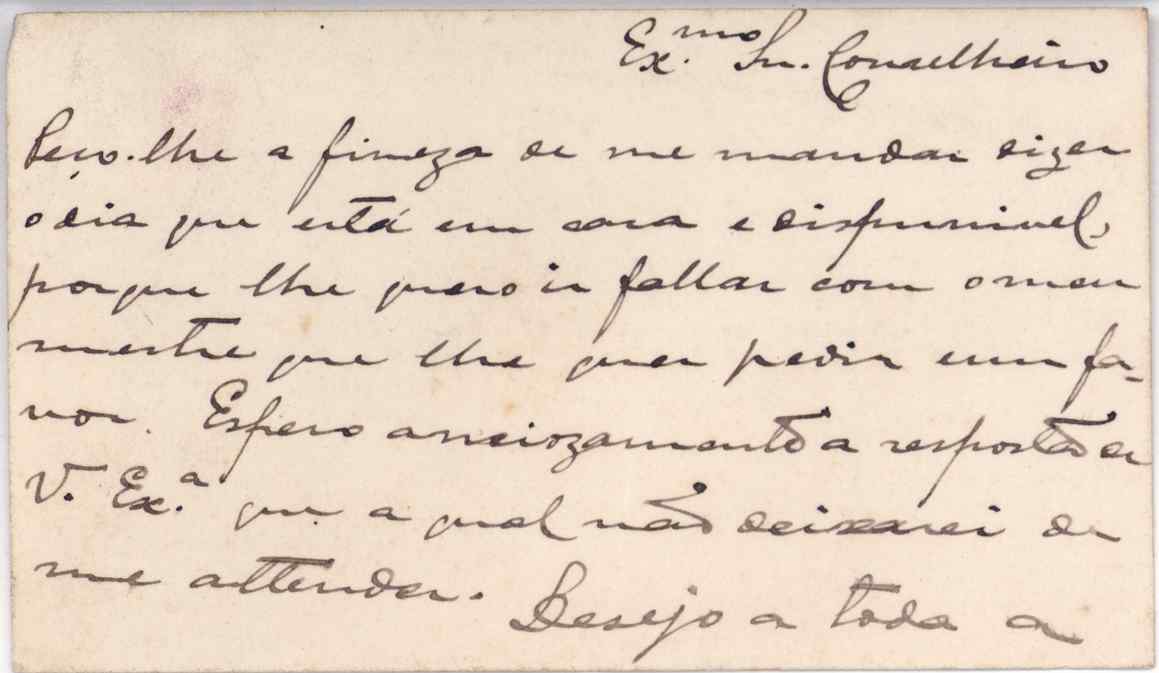 Ex.mo Sr. Conselheiro
Peço-lhe a fineza de me mandar dizer
o dia que está em casa e dispunivel,
porque lhe quero ir fallar com o meu
mestre que lhe quer pedir um fa-
vor. Espero anciozamente a resposta de
V. Ex.a que a qual não deixarei de
me attender. Desejo a toda a